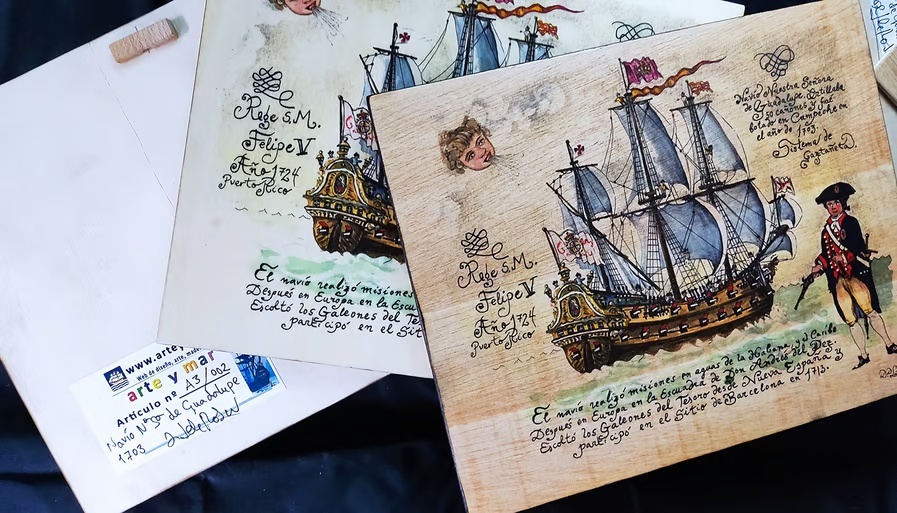 Rege S.M.
Felipe V
Año 1724
Puerto Rico
El navio realizó misiones
Después en Europa en la Escu
Escoltó los Galeones del Te
participó en el Sit
Navio Nuestra Señora
de Guadalupe. Artillaba
50 cañones y fué
botado en Campeche en
el año de 1703.
Sistema de
Gaztañeta.
Rege S.M.
Felipe V
Año 1724
Puerto Rico
El navio realizó misiones en aguas de la Habana y el Caribe
Después en Europa en la Escuadra de Don Andrés del Pez.
Escoltó los Galeones del Tesoro desde Nueva España y
participó en el Sitio de Barcelona en 1713.
www.artey
Web de diseño, arte, mode
arte y mar
Artículo nº A3/002
Navio Nª Sª de Guadalupe
1703